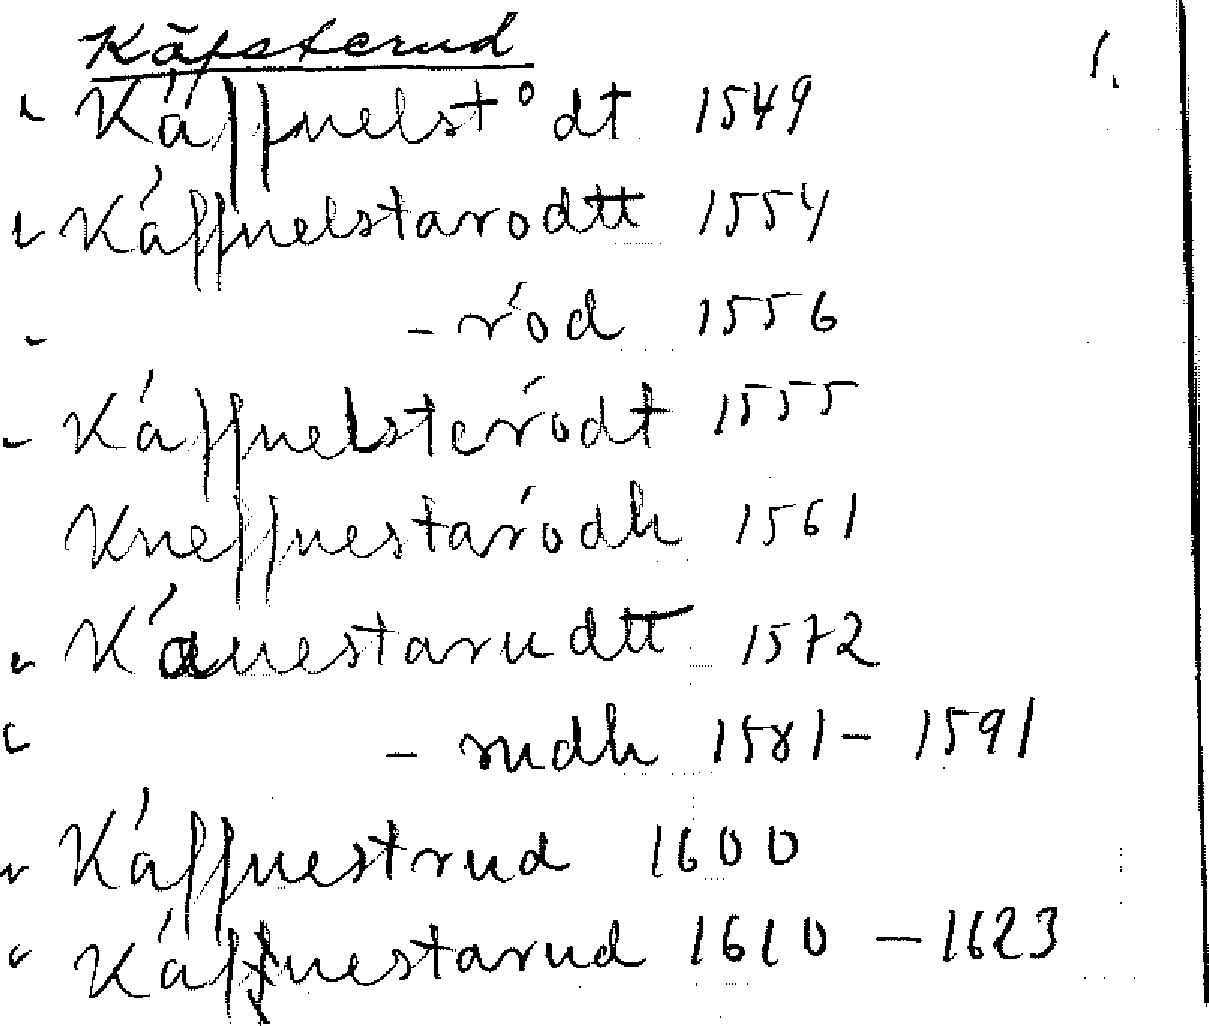 Käpsterud 1.
" Käffnelst° dt 1549
" Käffnelstarodtt 1554
" - röd 1556
" Käffnelsterödt 1555
Kneffnestarödh 1561
" Känestarudtt 1572
" - rudh 1581 - 1591
" Käffnestrud 1600
" Käffnestarud 1610 - 1623